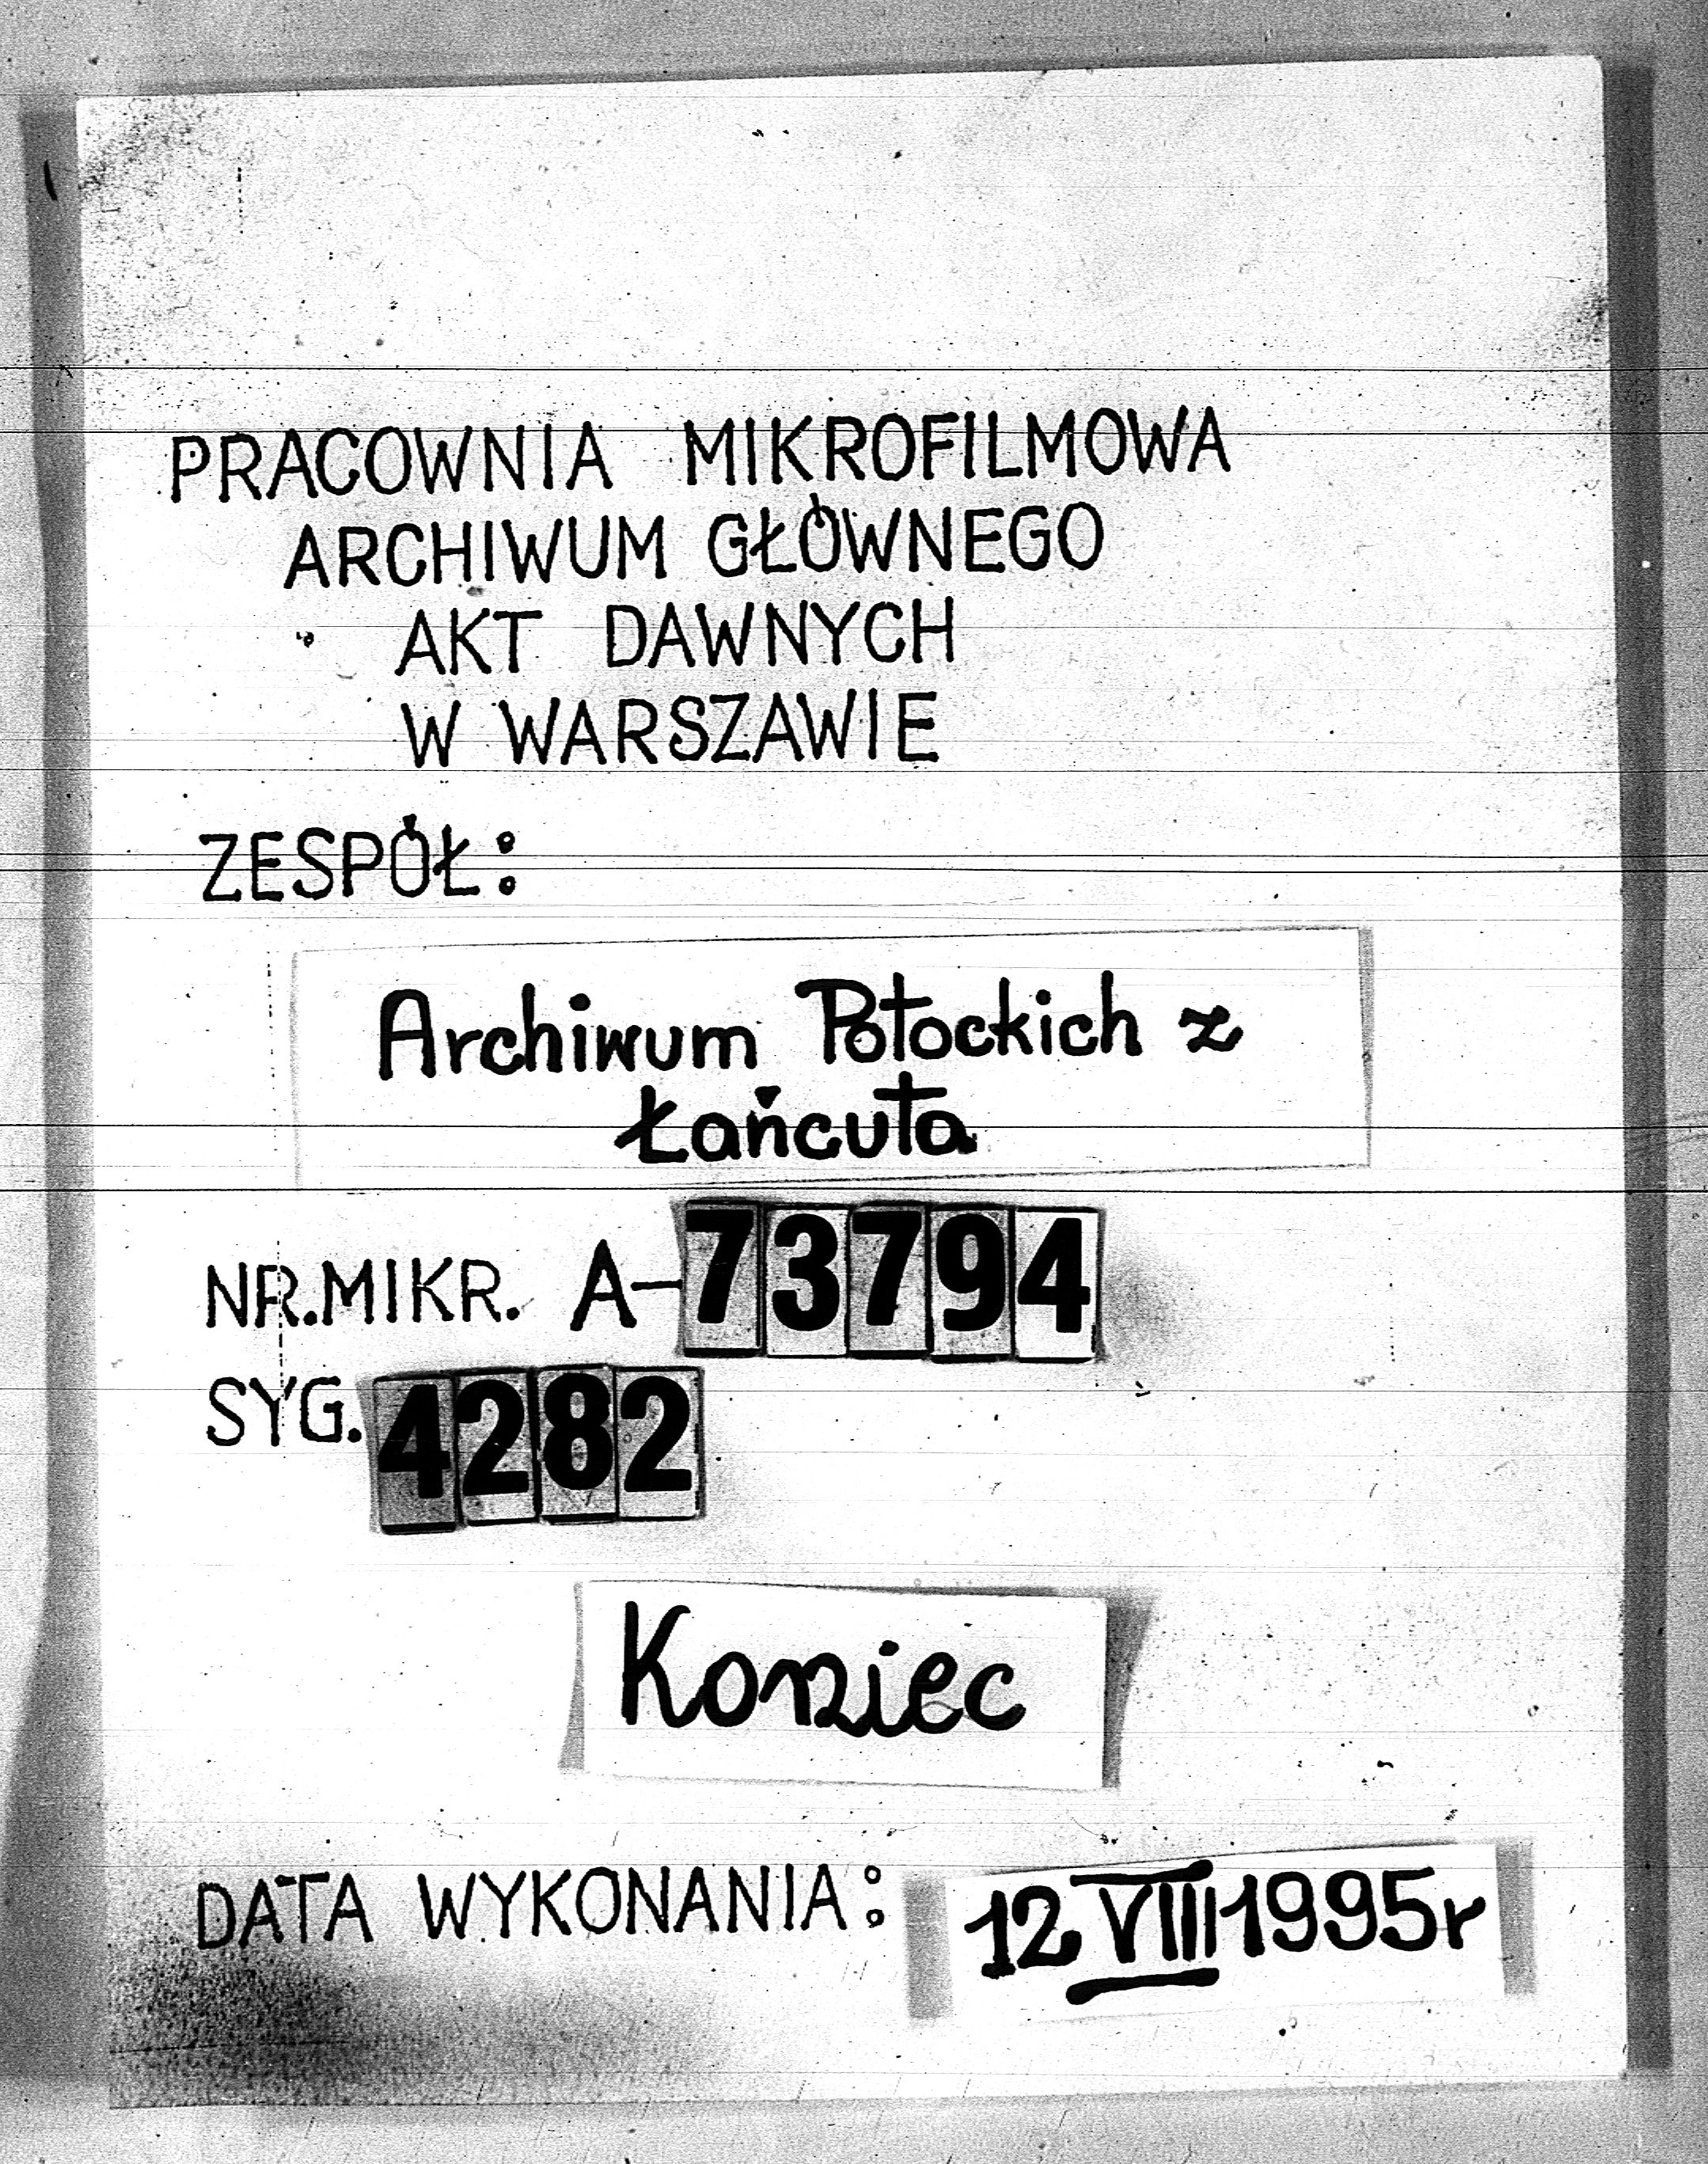 PRACOWNIA MIKROFILMOWA
ARCHIWUM GŁÓWNEGO
AKT DAWNYCH
W WARSZAWIE
ZESPÓŁ:
Archiwum Potockich z
Łańcuta
NR.MIKR. A-73794
SYG. 4282
Koniec
DATA WYKONANIA: 12 VIII 1995r